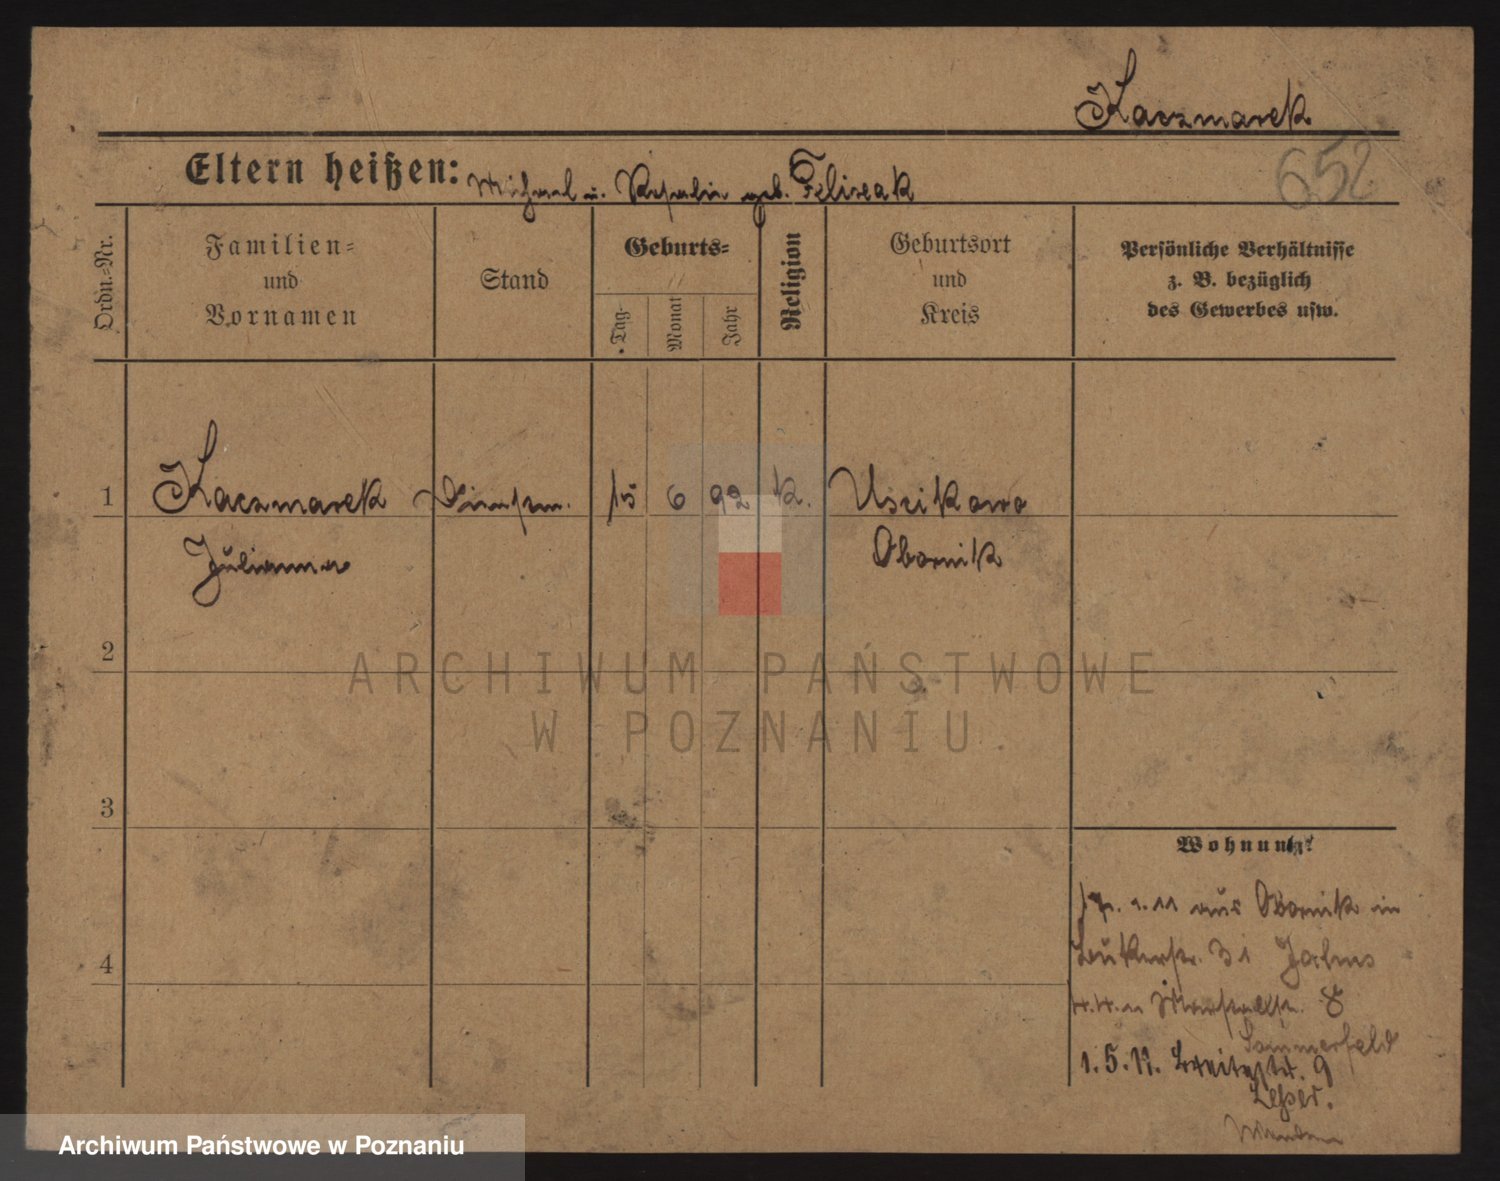 Kaczmarek
652
Eltern heißen: Michael u. Rosalie geb. Feliseak
Ordn.-Nr.
Familien-
und
Vornamen
Stand
Geburts-
Tag
Monat
Jahr
Religion
Geburtsort
und
Kreis
Persönliche Verhältnisse
z. B. bezüglich
des Gewerbes usw.
1 Kaczmarek 15 6 92 K. Uscikowo
Julianna Obornik
2
ARCHIWUM PAŃSTWOWE
W POZNANIU
3
Wohnung:
11 aus Obornik in
31
4
8
Sommerfeld
1.5.11. Breitestr. 9
Lesser.
Archiwum Państwowe w Poznaniu